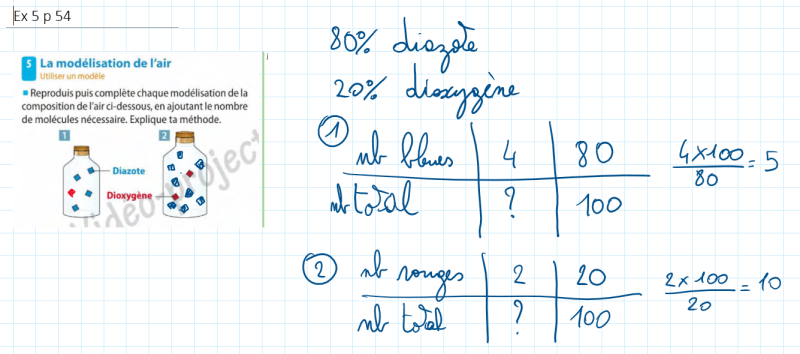 Ex 5 p 54
5 La modélisation de l'air
Utiliser un modèle
Reproduis puis complète chaque modélisation de la
composition de l'air ci-dessous, en ajoutant le nombre
de molécules nécessaire. Explique ta méthode.
1 2
Diazote
Dioxygène
Video project
80% diazote
20% dioxygène
1
nb bleues 4 80
nb total ? 100
4 x 100 / 80 = 5
2 nb rouges 2 20
nb total ? 100
2 x 100 / 20 = 10